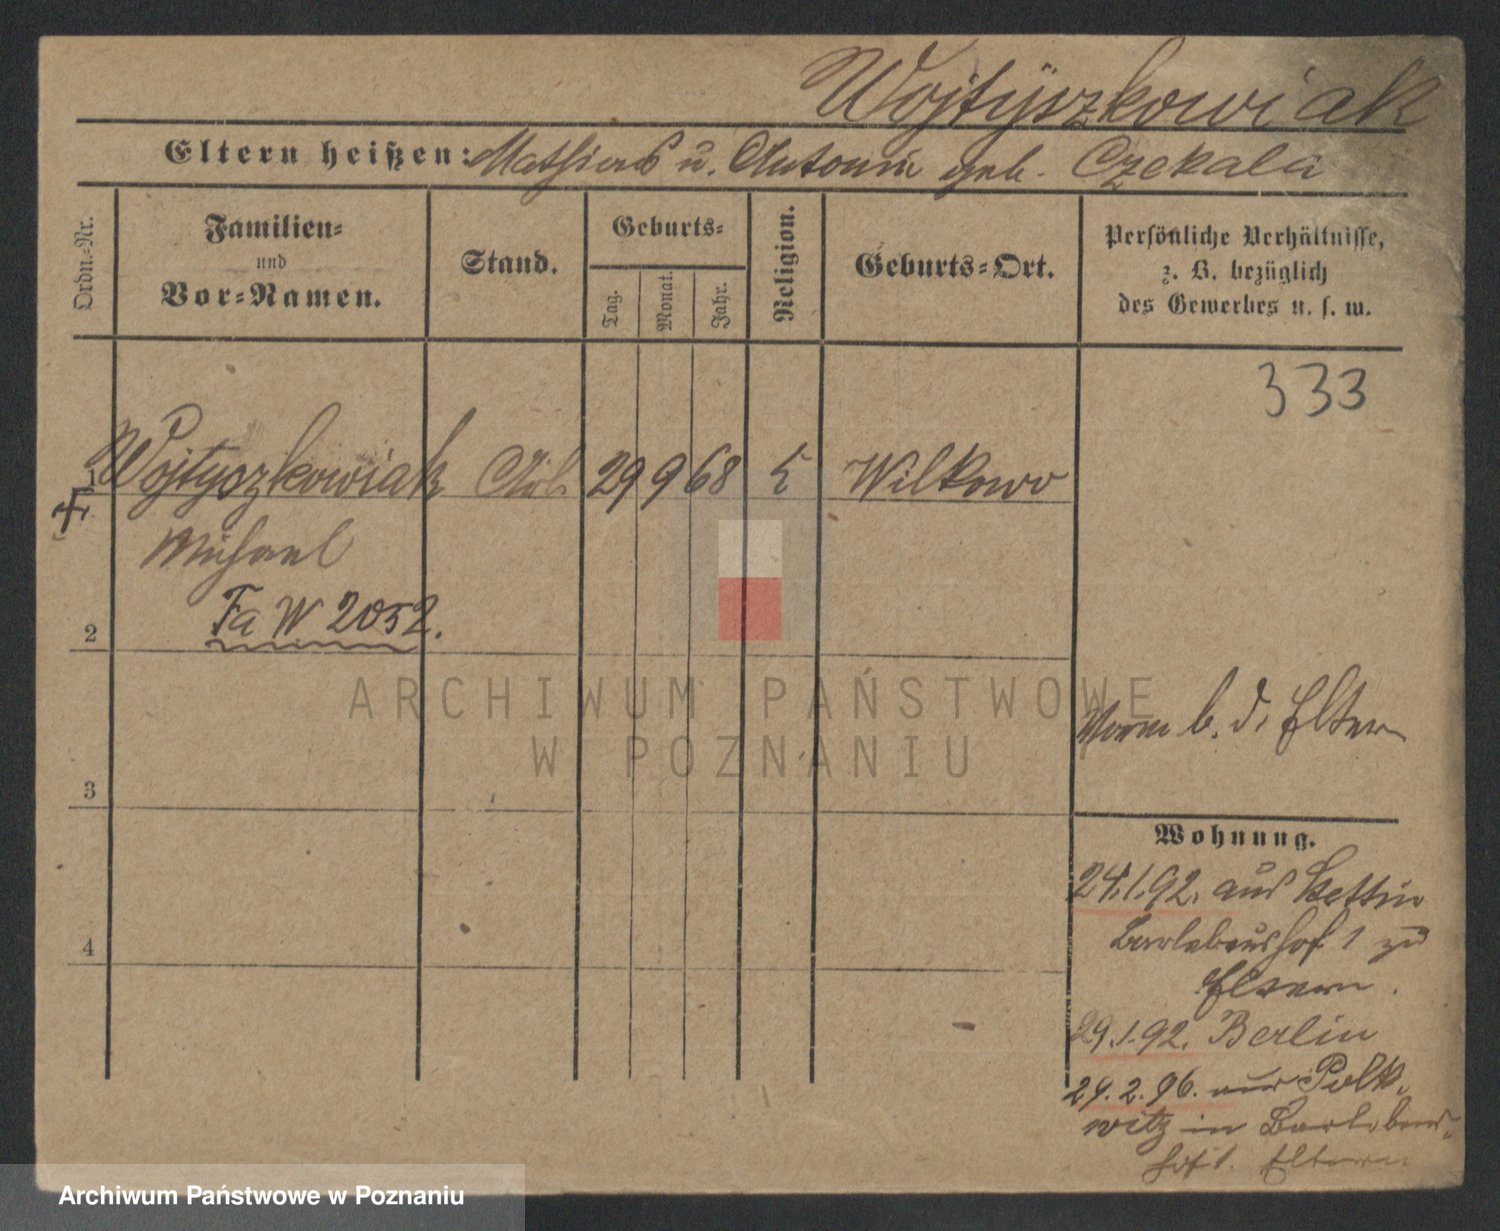 Wojtyszkowiak
Eltern heißen: Mathias u. Antonie geb. Czekala
Ordn.-Nr.
Familien-
und
Vor-Namen.
Stand.
Geburts-
Tag.
Monat.
Jahr.
Religion.
Geburts-Ort.
Persönliche Verhältnisse,
z. B. bezüglich
des Gewerbes u. s. w.
333
1 Wojtyszkowiak Arb. 29 9 68 k Wilkowo
Michael
Fa W 2052.
2
b. d. Eltern
3
Wohnung.
24.1.92. aus Stettin
Barlebenshof 1 zu
Eltern.
4
29.1.92. Berlin
29.2.96. aus Polk-
witz in Barlebens-
hof 1. Eltern
ARCHIWUM PAŃSTWOWE
W POZNANIU
Archiwum Państwowe w Poznaniu